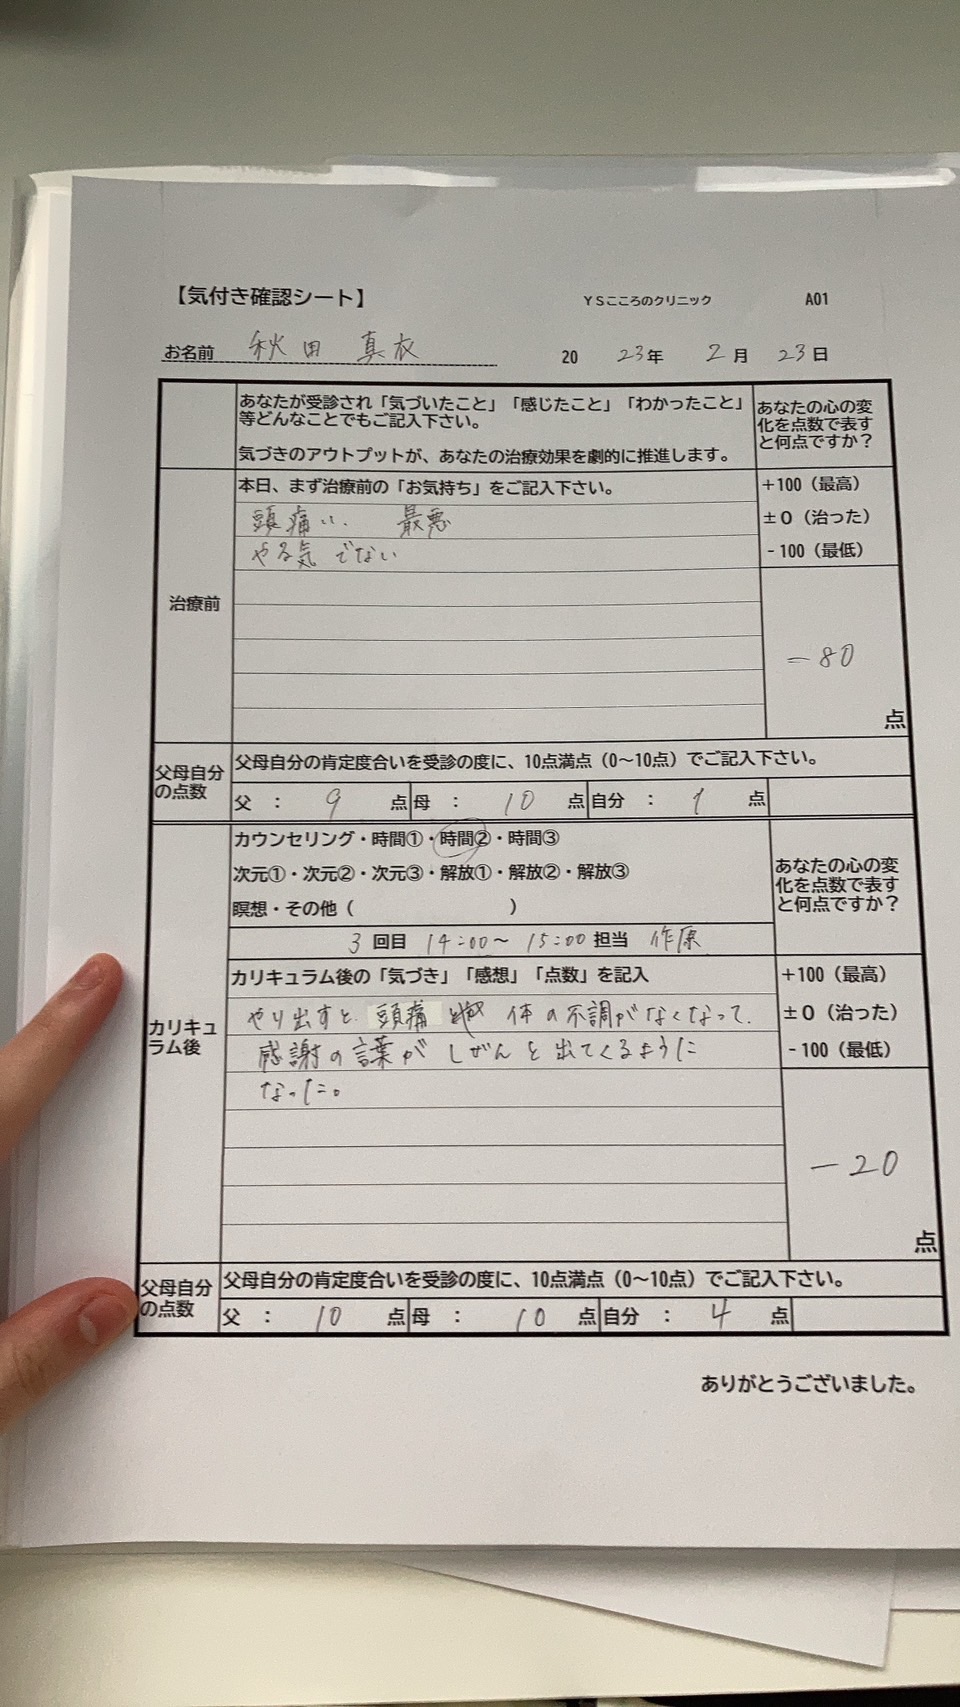 【気付き確認シート】 YSこころのクリニック A01
お名前 秋田 真衣 20 23年 2月 23日
あなたが受診され「気づいたこと」「感じたこと」「わかったこと」
等どんなことでもご記入下さい。
気づきのアウトプットが、あなたの治療効果を劇的に推進します。
あなたの心の変
化を点数で表す
と何点ですか？
治療前
本日、まず治療前の「お気持ち」をご記入下さい。
頭痛い. 最悪
やる気 でない
+100（最高）
±0（治った）
-100（最低）
-80
点
父母自分
の点数
父母自分の肯定度合いを受診の度に、10点満点（0～10点）でご記入下さい。
父 ： 9 点 母 ： 10 点 自分 ： 1 点
カリキュ
ラム後
カウンセリング・時間①・時間②・時間③
次元①・次元②・次元③・解放①・解放②・解放③
瞑想・その他（ ）
3 回目 14:00～ 15:00 担当 作原
あなたの心の変
化を点数で表す
と何点ですか？
カリキュラム後の「気づき」「感想」「点数」を記入
やり出すと 頭痛 体の不調がなくなって.
感謝の言葉が しぜんと出てくるように
なった。
+100（最高）
±0（治った）
-100（最低）
-20
点
父母自分
の点数
父母自分の肯定度合いを受診の度に、10点満点（0～10点）でご記入下さい。
父 ： 10 点 母 ： 10 点 自分 ： 4 点
ありがとうございました。